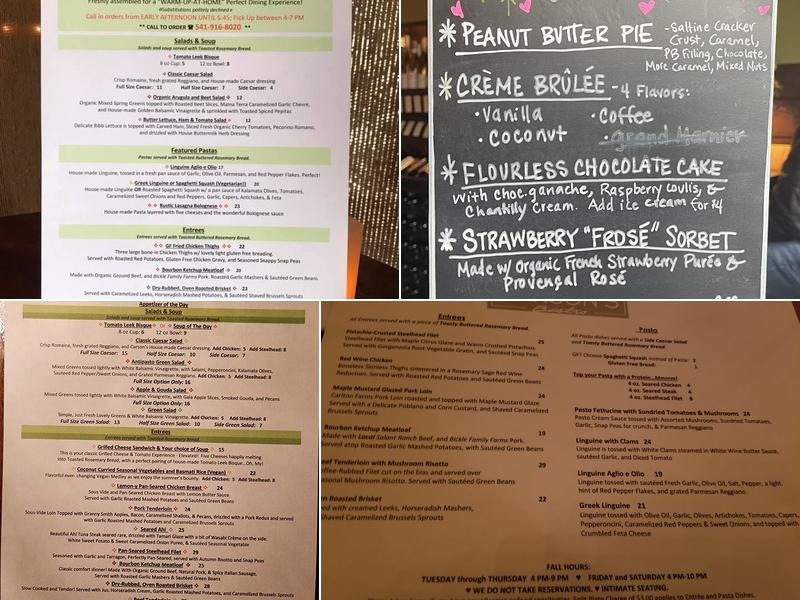 Freshly assembled for a "WARM-UP-AT-HOME" Perfect Dining Experience!
#Substitutions politely declined♥
Call in orders from EARLY AFTERNOON UNTIL 6:45; Pick Up between 4-7 PM
** CALL TO ORDER ☎ 541-916-8020 **
Salads & Soup
Salads and soup served with Toasted Rosemary Bread.
Tomato Leek Bisque
8 oz Cup: 5 12 oz Bowl: 8
Classic Caesar Salad
Crisp Romaine, fresh grated Reggiano, and House-made Caesar dressing
Full Size Caesar: 11 Half Size Caesar: 7 Side Caesar: 4
Organic Arugula and Beet Salad 12
Organic Mixed Spring Greens topped with Roasted Beets, Mama Terra Caramelized Garlic Chevre,
and House-made Golden Balsamic Vinaigrette & sprinkled with Toasted Spiced Pepitas
Butter Lettuce, Ham & Tomato Salad 12
Delicate Bibb Lettuce is topped with Carved Ham, Sliced Fresh Organic Cherry Tomatoes, Pecorino Romano,
and drizzled with House Buttermilk Herb Dressing
Featured Pastas
Pastas served with Toasted Buttered Rosemary Bread.
Linguine Aglio e Olio 17
House-made Linguine, tossed in a fresh pan sauce of Garlic, Olive Oil, Parmesan, and Red Pepper Flakes. Perfect!
Greek Linguine or Spaghetti Squash (Vegetarian!) 20
House-made Linguine OR Roasted Spaghetti Squash w/ a pan sauce of Kalamata Olives, Tomatoes,
Caramelized Sweet Onions and Red Peppers, Garlic, Capers, Artichokes, & Feta
Rustic Lasagna Bolognese 23
House-made Pasta layered with five cheeses and the wonderful Bolognese sauce
Entrées
Entrées served with Toasted Buttered Rosemary Bread.
GF Fried Chicken Thighs 22
Three large bone-in Chicken Thighs w/ lovely light gluten free breading.
Served with Roasted Red Potatoes, Gluten Free Chicken Gravy, and Seasoned Snappy Snap Peas
Bourbon Ketchup Meatloaf 20
Made with Organic Ground Beef, and Bickle Family Farms Pork. Roasted Garlic Mashers & Sautéed Green Beans
Dry-Rubbed, Oven Roasted Brisket 23
Served with Caramelized Leeks, Horseradish Mashed Potatoes, & Sautéed Shaved Brussels Sprouts
* PEANUT BUTTER PIE - Saltine Cracker
Crust, Caramel,
PB filling, Chocolate,
More Caramel, Mixed Nuts
* CRÈME BRÛLÉE - 4 Flavors:
• Vanilla • Coffee
• Coconut • Grand Marnier
* FLOURLESS CHOCOLATE CAKE
with choc. ganache, Raspberry Coulis, &
Chantilly Cream. Add ice cream for $4
* STRAWBERRY "FROSÉ" SORBET
Made w/ Organic French Strawberry Purée &
Provençal Rosé
Appetizer of the Day
Salads & Soup
Salads and soup served with Toasted Rosemary Bread.
Tomato Leek Bisque Or Soup of The Day
8 oz Cup: 6 12 oz Bowl: 9
Classic Caesar Salad
Crisp Romaine, fresh grated Reggiano, and Carson's House-made Caesar dressing. Add Chicken: 5 Add Steelhead: 8
Full Size Caesar: 15 Half Size Caesar: 10 Side Caesar: 7
Antipasto Green Salad
Mixed Greens tossed lightly with White Balsamic Vinaigrette, with Salami, Pepperoncini, Kalamata Olives,
Sautéed Red Pepper/Sweet Onions, and Grated Parmesan Reggiano. Add Chicken: 5
Full Size Option Only: 16
Apple & Gouda Salad
Mixed Greens tossed lightly with White Balsamic Vinaigrette, with Gala Apple Slices, Smoked Gouda, and Pecans
Full Size Option Only: 16
Green Salad
Simple, Just Fresh Lovely Greens & White Balsamic Vinaigrette. Add Chicken: 5 Add Steelhead: 8
Full Size Salad: 13 Half Size Green Salad: 10 Side Green Salad: 7
Entrées
Entrées served with Toasted Buttered Rosemary Bread.
Grilled Cheese Sandwich & Your choice of Soup 15
This is your classic Grilled Cheese & Tomato Experience - Elevated! Five Cheeses happily melting
into Toasted Rosemary Bread, with a perfect pairing of house-made Tomato Leek Bisque...Oh, My!
Coconut Curried Seasonal Vegetables and Basmati Rice (Vegan) 22
Flavorful ever changing Vegan Medley as we enjoy the summer's bounty. Add Chicken: 5 Add Steelhead: 8
Lemon & Pan-Seared Chicken Breast 24
Sous Vide and Pan Seared Chicken Breast with Lemon Butter Sauce.
Served with Garlic Roasted Mashed Potatoes and Sautéed Green Beans
Pork Tenderloin 24
Sous-Vide Loin Topped with Granny Smith Apples, Bacon, Caramelized Shallots, & Pecans, drizzled with a Pork Redux and served
with Garlic Roasted Mashed Potatoes and Caramelized Brussels Sprouts
Seared Ahi 25
Beautiful Ahi Tuna Steak seared rare, drizzled with Tamari Glaze with a bit of Wasabi Crème on the side.
White Sweet Potato & Sweet Caramelized Onion Purée, & Sautéed Seasonal Vegetable
Pan-Seared Steelhead Filet 29
Seasoned with Garlic and Tarragon, Perfectly Pan-Seared; served with Autumn Risotto and Snap Peas
Bourbon Ketchup Meatloaf 25
Classic comfort dinner! Made With Organic Ground Beef, Natural Pork, & Spicy Italian Sausage,
Served with Roasted Garlic Mashers & Sautéed Green Beans
Dry-Rubbed, Oven Roasted Brisket 28
Slow Cooked and Tender! Served with Jus, Horseradish Cream, Garlic Roasted Mashed Potatoes, and Caramelized Brussels Sprouts
Entrees
All Entrees served with a piece of Toasty Buttered Rosemary Bread.
Pistachio-Crusted Steelhead Filet 25
Steelhead Filet with Maple Citrus Glaze and Warm Crushed Pistachios.
Served with Gorgonzola Root Vegetable Gratin, and Sautéed Snap Peas
Red Wine Chicken 24
Boneless Skinless Thighs simmered in a Rosemary Sage Red Wine
Reduction. Served with Roasted Red Potatoes and Sautéed Green Beans
Maple Mustard Glazed Pork Loin 24
Carlton Farms Pork Loin roasted and topped with Maple Mustard Glaze
Served with a Delicate Poblano and Corn Custard, and Shaved Caramelized
Brussels Sprouts
Bourbon Ketchup Meatloaf 19
Made with Local Salant Ranch Beef, and Bickle Family Farms Pork.
Served atop Roasted Garlic Mashers, with Sautéed Green Beans
Beef Tenderloin with Mushroom Risotto 29
Coffee-Rubbed Filet cut on the bias and served over
Seasonal Mushroom Risotto. Served with Sautéed Green Beans
Oven Roasted Brisket 22
served with creamed Leeks, Horseradish Mashers,
Caramelized Brussels Sprouts
Pasta
All Pasta dishes served with a Side Caesar Salad
and Toasty Buttered Rosemary Bread
GF? Choose Spaghetti Squash instead of Pasta: 3
Gluten Free Bread: 1
Top your Pasta with a Protein...Mmmm!
4 oz. Seared Chicken 4
4 oz. Seared Steak 4
4 oz. Steelhead Filet 8
Pesto Fettucine with Sundried Tomatoes & Mushrooms 24
Pesto Cream Sauce tossed with Assorted Mushrooms, Sundried Tomatoes,
Garlic, Snap Peas for crunch, & Parmesan Reggiano
Linguine with Clams 24
Linguine is tossed with White Clams steamed in White Wine Butter Sauce,
sautéed Garlic, and Diced Tomato
Linguine Aglio e Olio 19
Linguine tossed with sautéed Fresh Garlic, Olive Oil, Salt, Pepper, a light
hint of Red Pepper Flakes, and grated Parmesan Reggiano.
Greek Linguine 21
Linguine tossed with Olive Oil, Garlic, Olives, Artichokes, Tomatoes, Capers,
Pepperoncini, Caramelized Red Peppers & Sweet Onions, and topped with
Crumbled Feta Cheese
FALL HOURS:
TUESDAY through THURSDAY 4 PM-9 PM ♥ FRIDAY and SATURDAY 4 PM-10 PM
♥ WE DO NOT TAKE RESERVATIONS. ♥ INTIMATE SEATING.
Split Plate Charge of $3.00 applies to Entrée and Pasta Dishes.